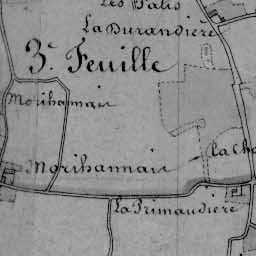 Les Palis
La Durandière
3.e Feuille
Morihannais
Morihannais
La Cha
La Primaudière